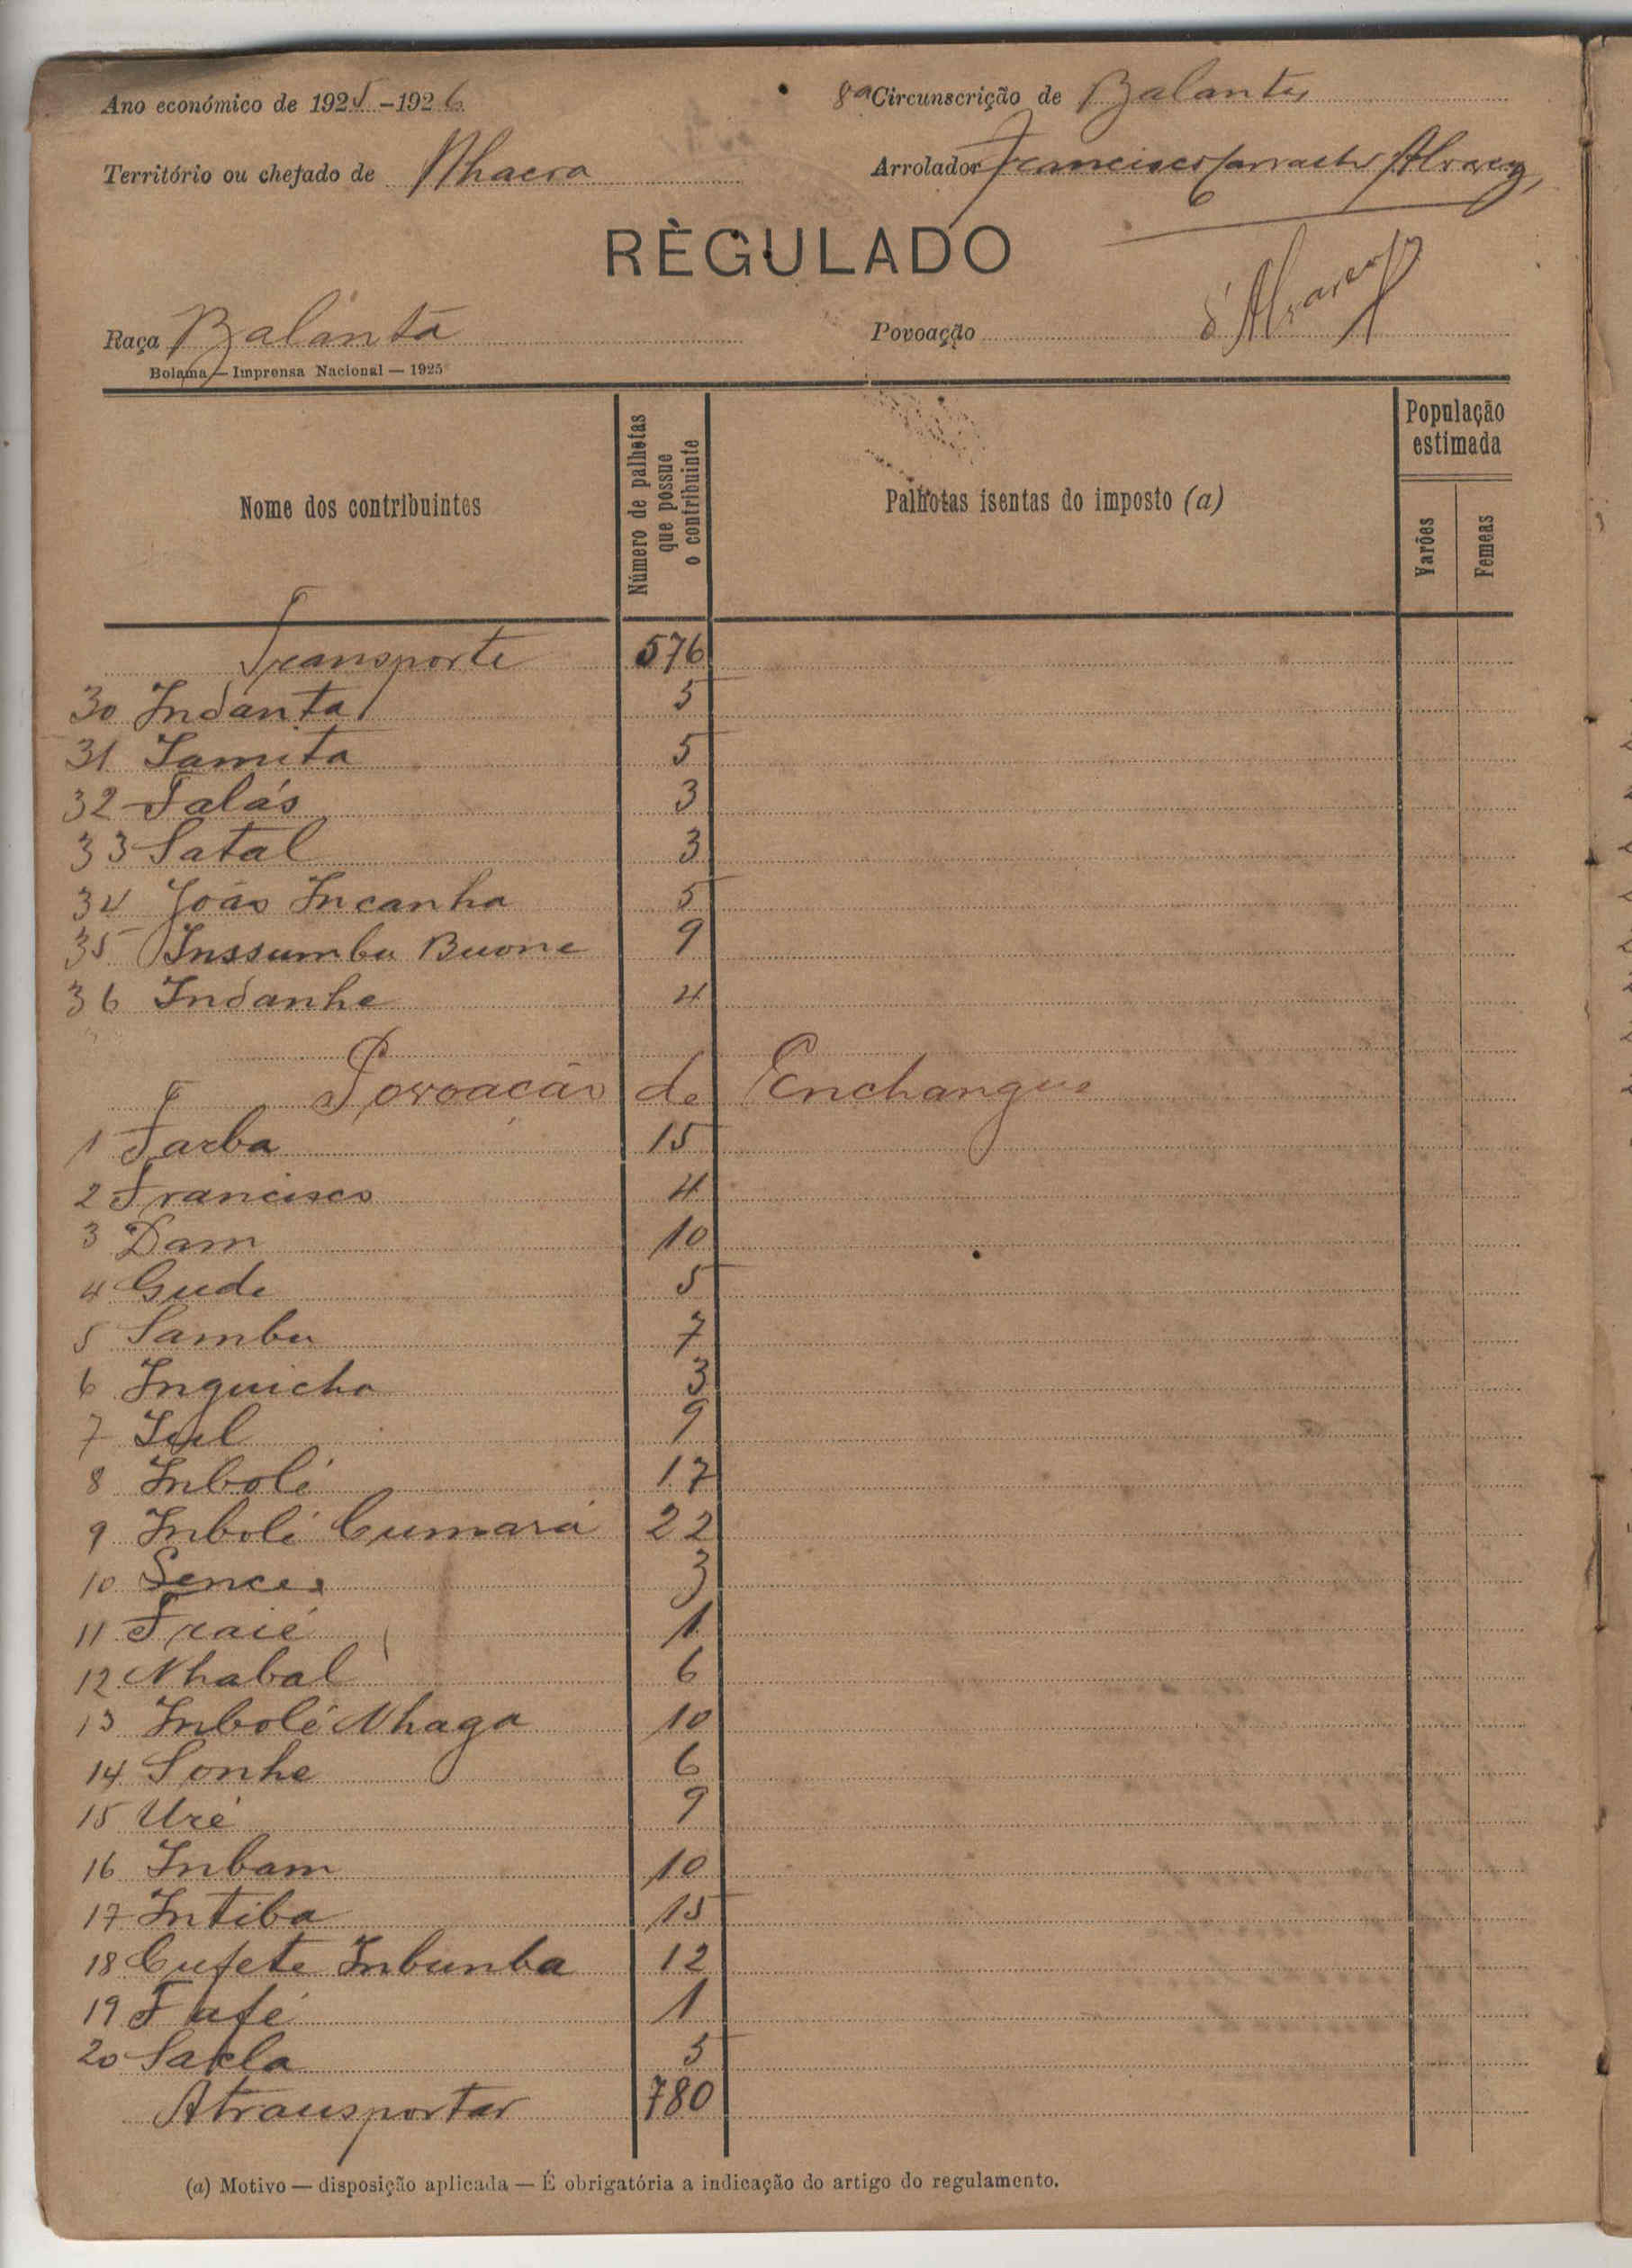 Ano económico de 1925-1926
8ª Circunscrição de Balantas
Território ou chefado de Nhacra
Arrolador Francisco Alvarez
RÈGULADO
Alvarez
Raça Balanta
Povoação
Bolama — Imprensa Nacional — 1925
Nome dos contribuintes
Número de palhotas que possue o contribuinte
Palhotas isentas do imposto (a)
População estimada
Varões
Femeas
Transporte 576
30 Indanta 5
31 Samita 5
32 Talás 3
33 Satal 3
34 João Incanha 5
35 Inssumbu Buone 9
36 Indanhe 4
Povoação de Enchangue
1 Tarba 15
2 Francisco 4
3 Dam 10
4 Gude 5
5 Sambu 7
6 Inquicha 3
7 9
8 Inbolé 17
9 Inbolé Cumará 22
10 3
11 Traié 1
12 Nhabal 6
13 Inbolé Nhaga 10
14 Sonhe 6
15 Uré 9
16 Inbam 10
17 Intiba 15
18 Cufete Inbunba 12
19 Fafé 1
20 Sakla 5
A transportar 780
(a) Motivo — disposição aplicada — É obrigatória a indicação do artigo do regulamento.